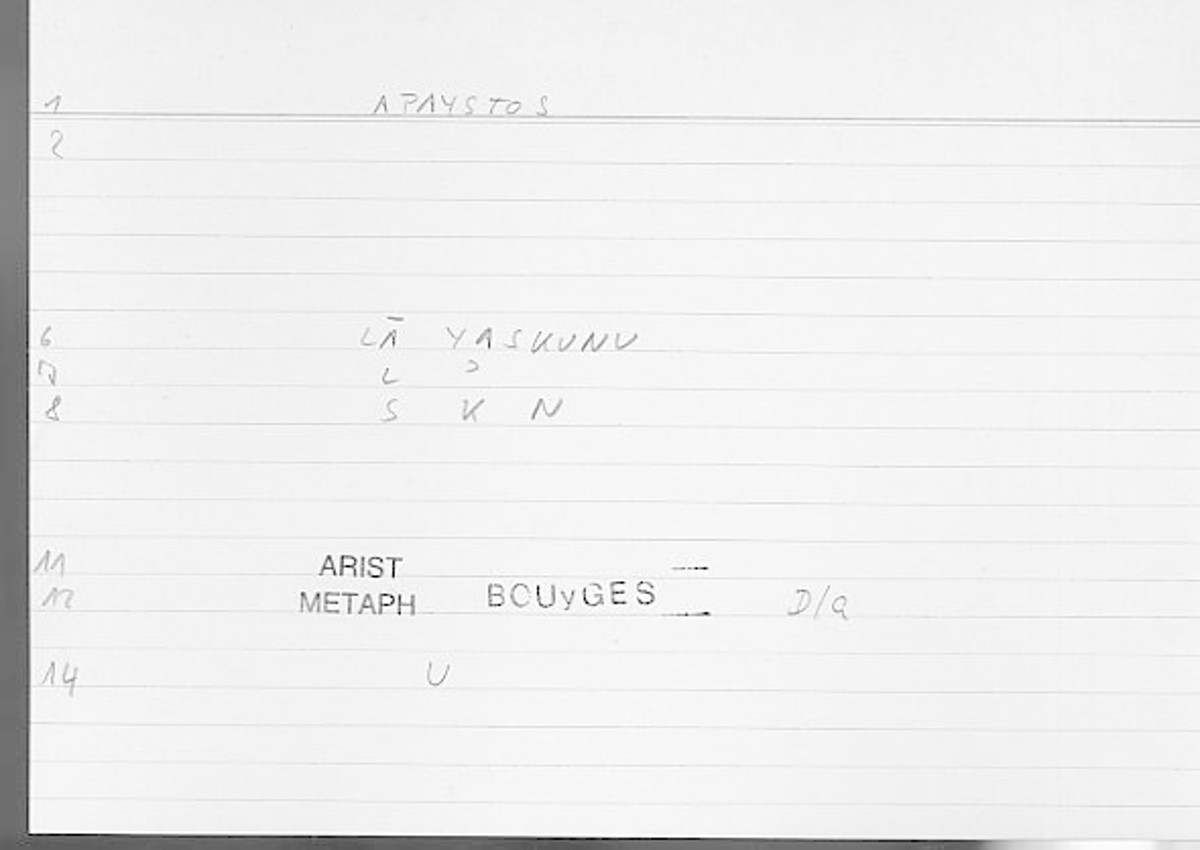 1 APAYSTOS
2
6 LĀ YASKUNU
7 L ɔ
8 S K N
11 ARIST —
12 METAPH BOUyGES — D/a
14 U